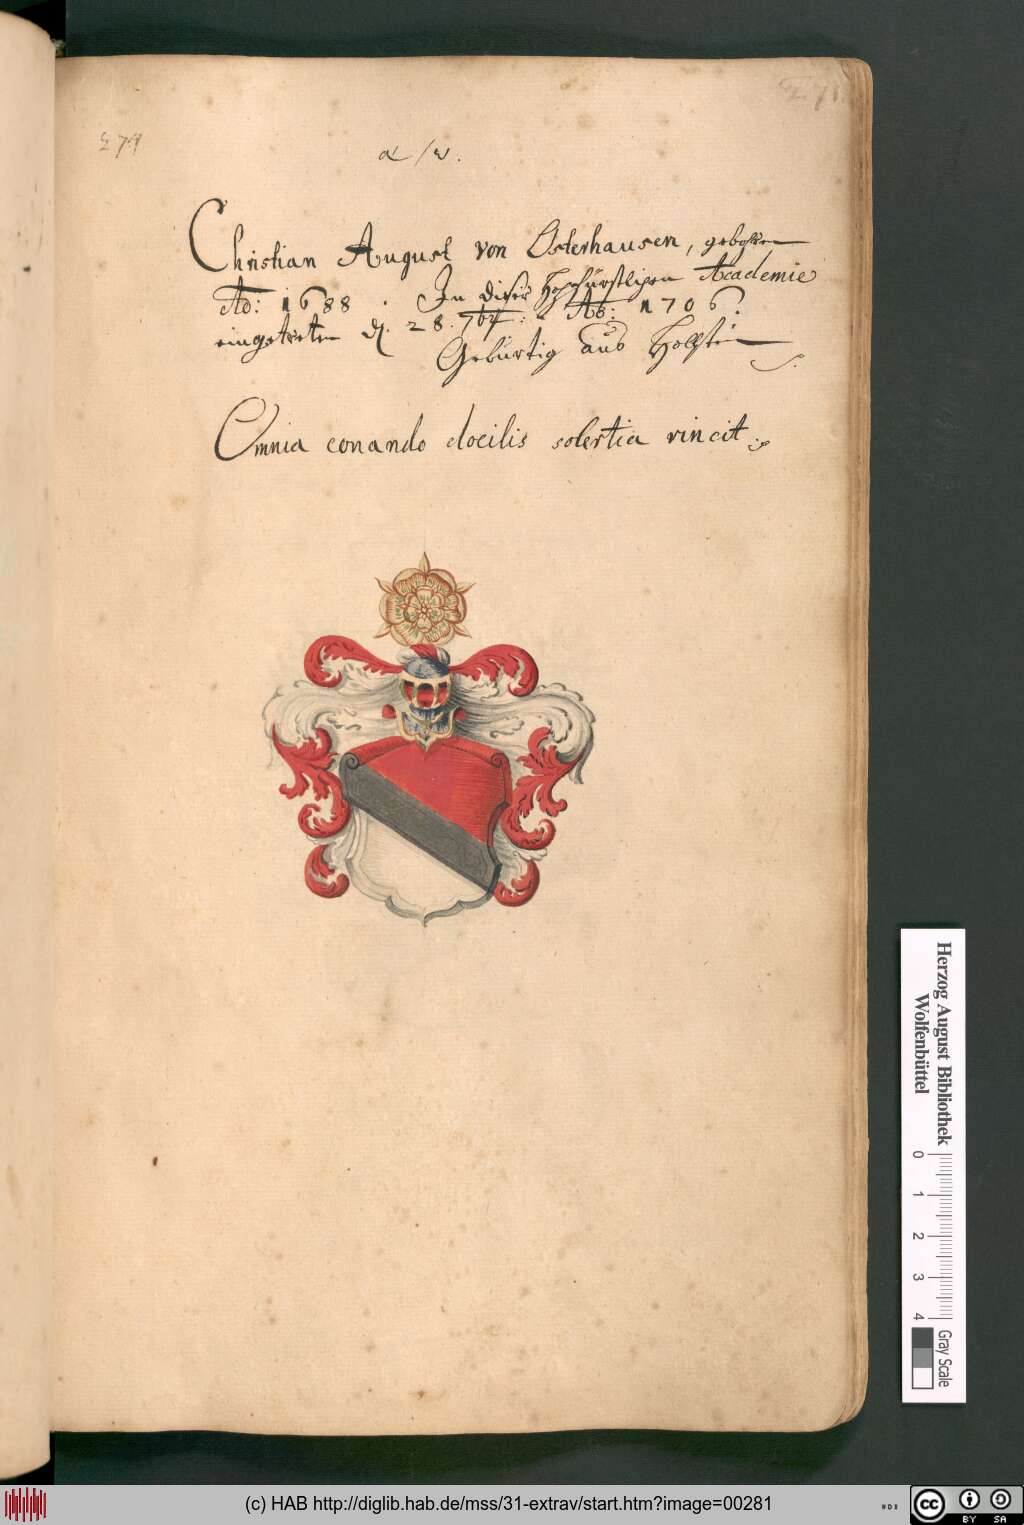 271
α / ω.
Christian August von Osterhausen, gebohren
Ao: 1688. In dieser Hochfürstlichen Academie
eingetreten d. 28. 7br: Ao: 1706.
Gebürtig aus Holstein
Omnia conando docilis solertia vincit.
Herzog August Bibliothek
Wolfenbüttel
0 1 2 3 4
Gray Scale
(c) HAB http://diglib.hab.de/mss/31-extrav/start.htm?image=00281
cc BY SA